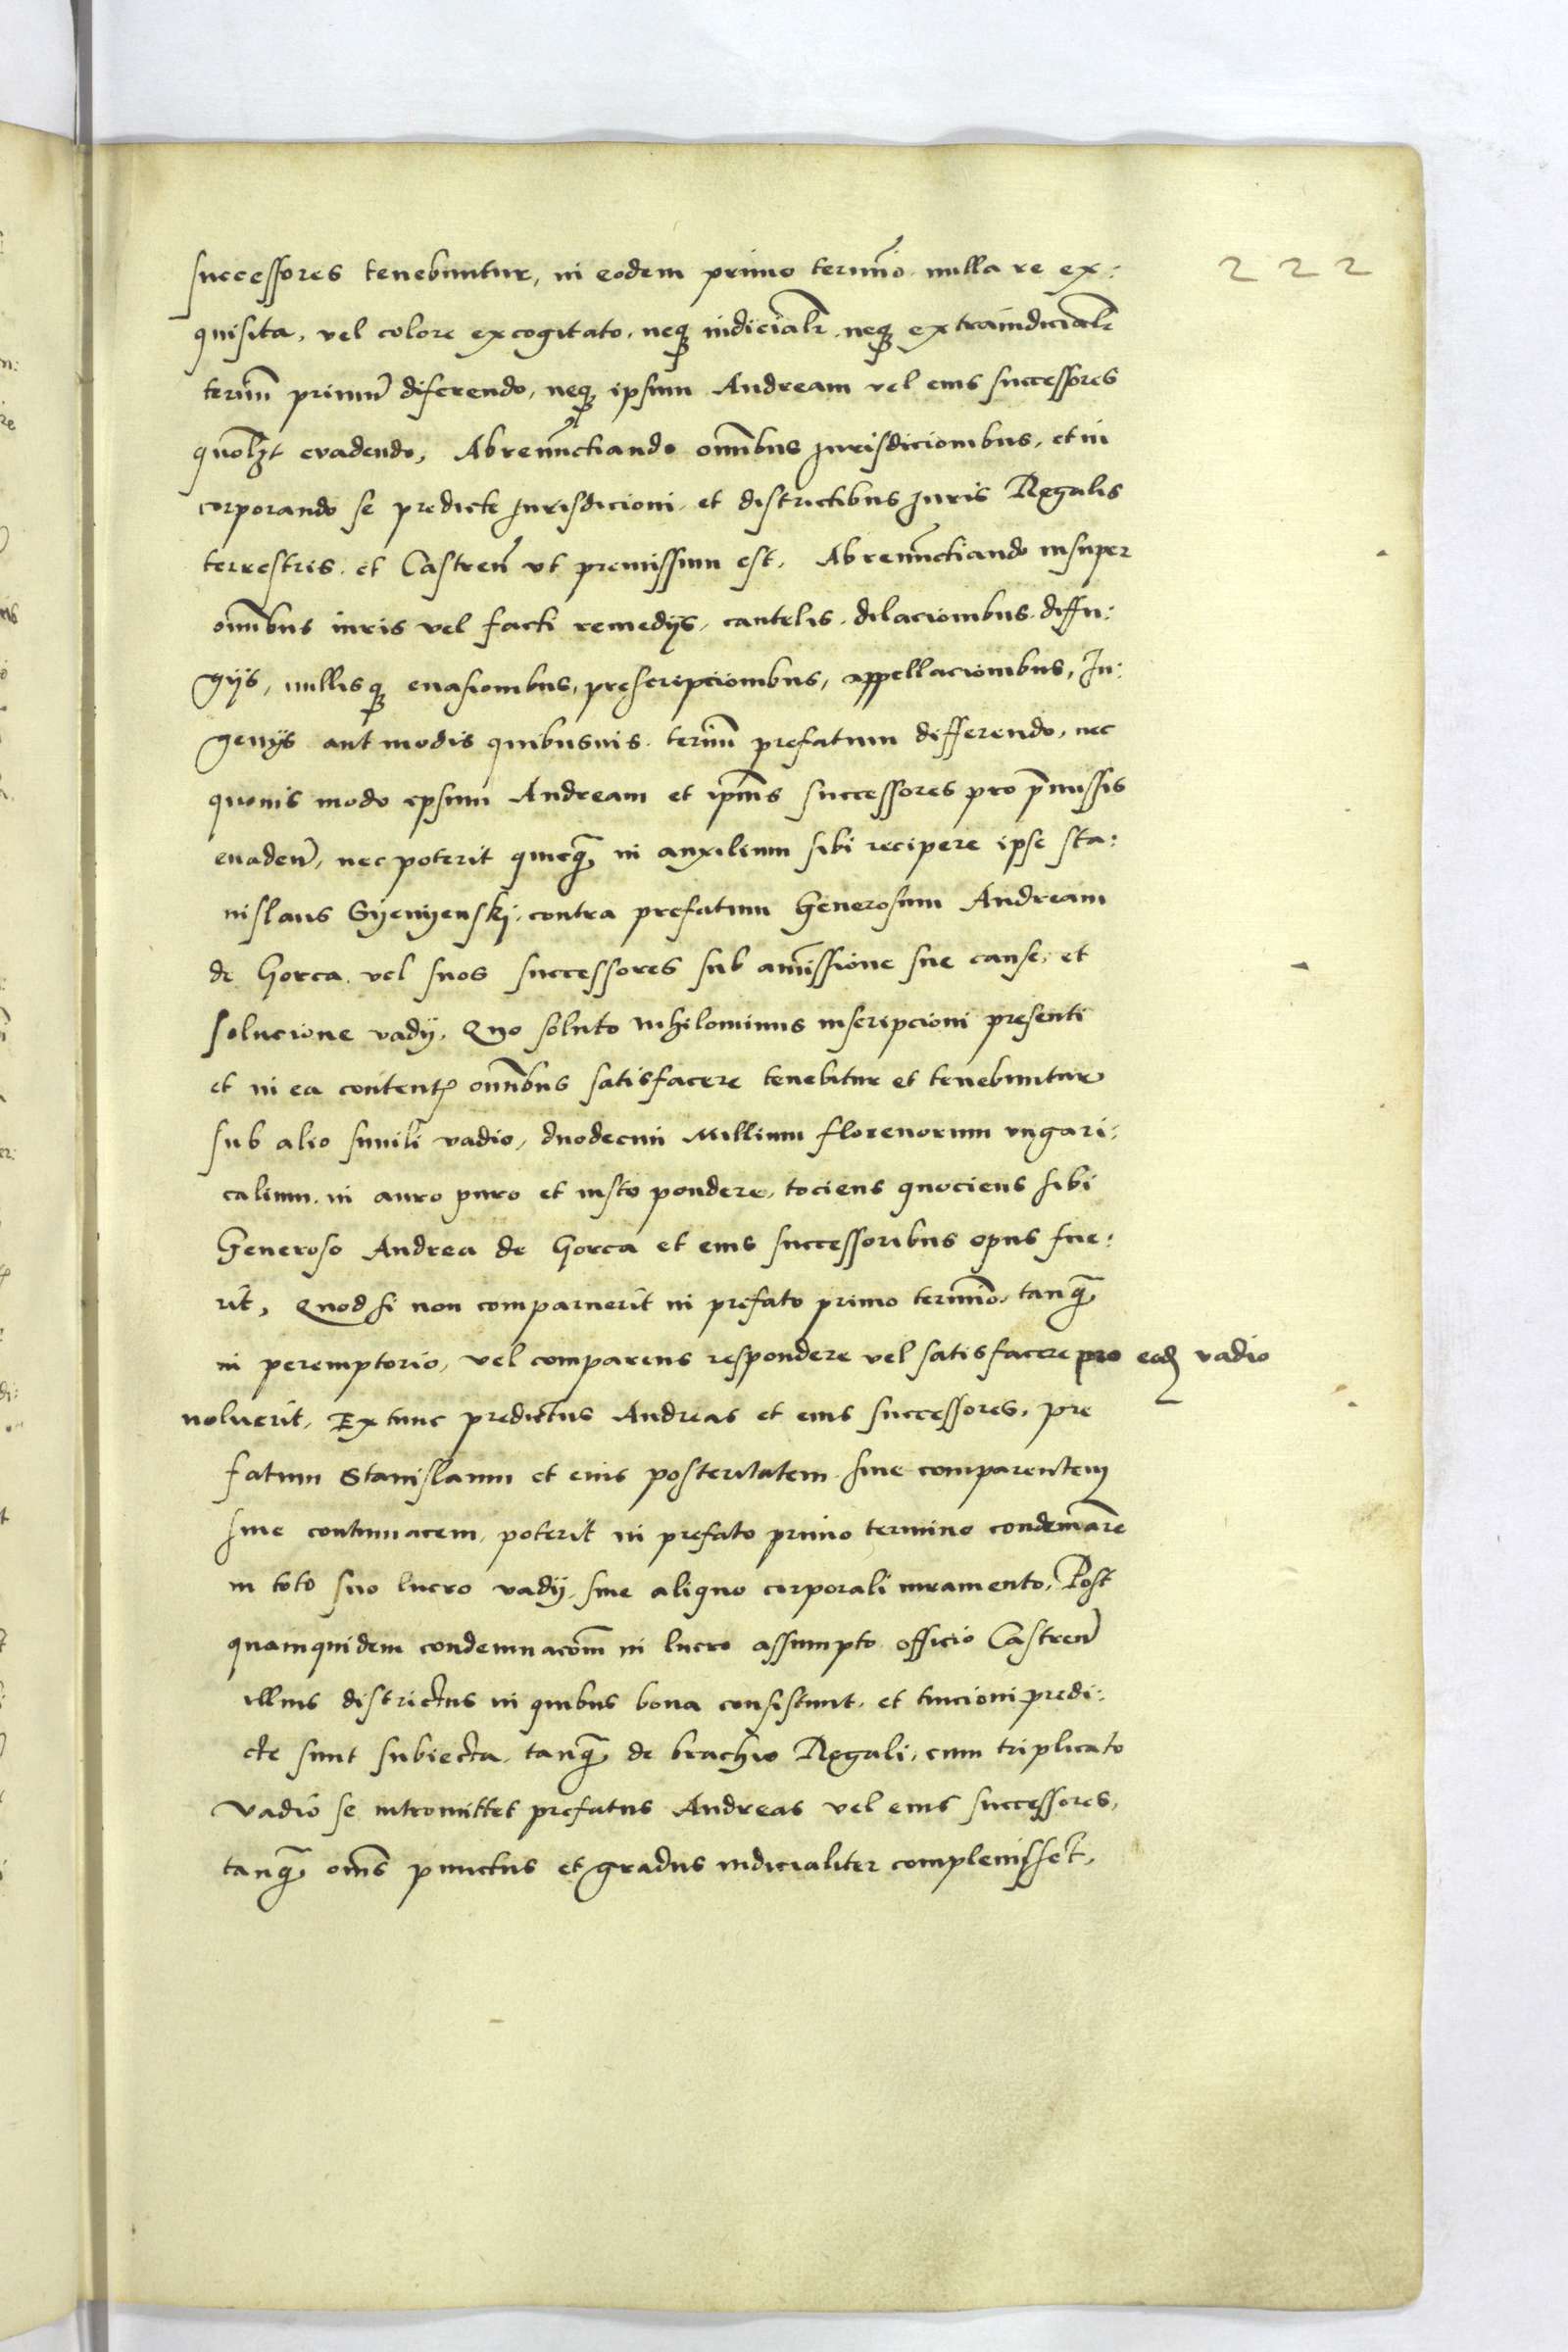 222
successores tenebuntur, in eodem primo termĩo nulla re ex:
quisita, vel colore excogitato, neqꝫ iudicialr̃ neqꝫ extraiudicialr̃
termi͂n primũ diferendo, neqꝫ ipsum Andream vel eius successores
quol͂ꝫt evadendo, Abrenũctiando om̃ibus Jurisdicionibus, et in
corporando se predicte Jurisdicioni et districtibus Juris Regalis
terrestris et Castren̄ vt premissum est, Abrenũctiando insuper
om̃ibus iuris vel facti remedijs, cautelis, dilacionibus, diffu:
gijs, nullisqꝫ euasionibus, prescripcionibus, appellacionibus, In:
genijs aut modis quibusuis, termĩ prefatum differendo, nec
quouis modo ipsum Andream et ip̃ius successores pro p̃missis
evaden̄, nec poterit quicq̃ in auxilium sibi recipere ipse Sta:
nislaus Gyenyenskj contra prefatum Generosum Andream
de Gorca vel suos successores sub amissione sue cause, et
solucione vadij, Quo soluto nihilominus inscripcioni presenti
et in ea content̨ om̃ibus satisfacere tenebitur et tenebuntur
sub alio simili vadio, duodecim Millium florenorum vngari:
calium, in auro puro et iusto pondere, tociens quociens sibi
Generoso Andrea de Gorca et eius successoribus opus fue:
rit, Quod si non comparuerit in prefato primo termĩo, tanq̃
in peremptorio, vel comparens respondere vel satisfacere pro eod̨ vadio
noluerit, Extunc predictus Andreas et eius successores, pre
fatum Stanislaum et eius posteritatem siue comparentem
siue contumacem, poterit in prefato primo termino condemnare
in toto suo lucro vadij, sine aliquo corporali iuramento, Post
quamquidem condemnacõm in lucro assumpto officio Castren̄
illius districtus in quibus bona consistunt, et tuicioni predi:
cte sunt subiecta, tanq̃ de brachio Regali, cum triplicato
vadio se intromittet prefatus Andreas vel eius successores,
tanq̃ om̃s punctus et gradus iudicialiter compleuisset,